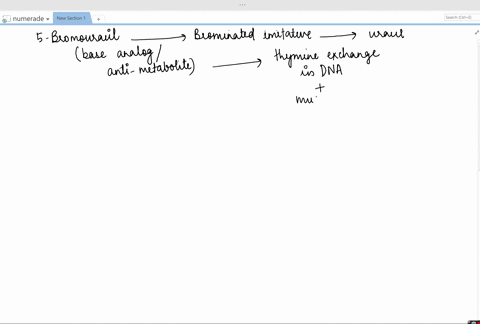 ...
numerade
New Section 1
+
Search (Ctrl+E)
5-Bromouracil → Brominated imitative → uracil
(base analog/
anti-metabolite) → thymine exchange
in DNA
+
mu